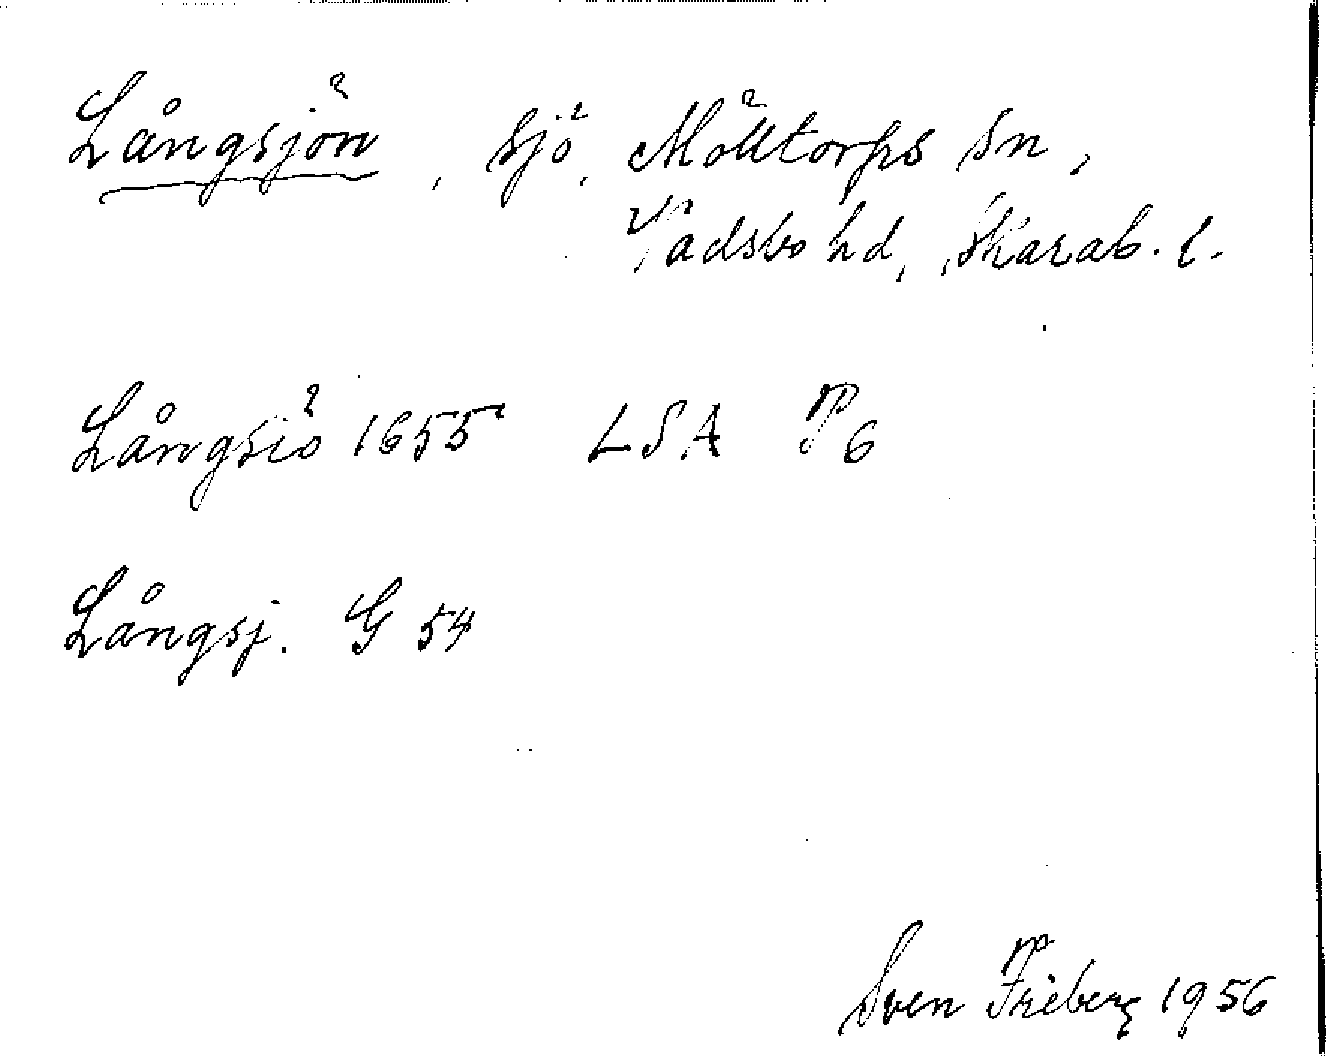 Långsjön, sjö, Mölltorps sn,
Vadsbo hd, Skarab. l.
Långsiö 1655 LSA P 6
Långsj. G 54
Sven Friberg 1956